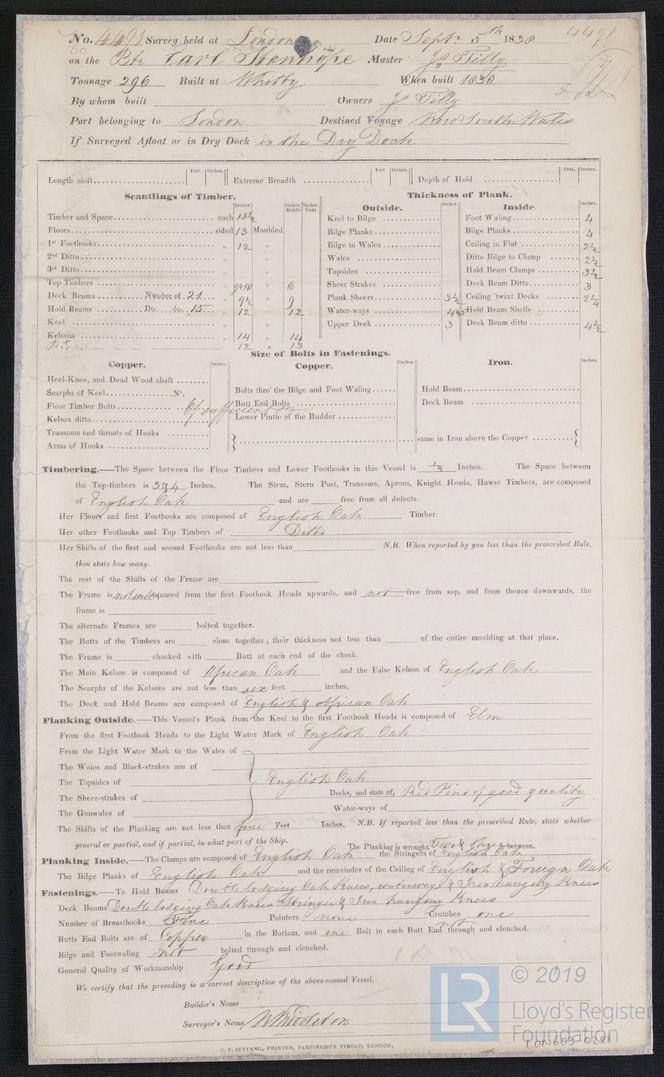 No. 4491 Survey held at London Date Septr 5th 1838
4491
on the Bk Earl Stanhope Master Js Tilly
Tonnage 296 Built at Whitby When built 1830
By whom built Owners Js Tilly
Port belonging to London Destined Voyage New South Wales
If Surveyed Afloat or in Dry Dock in the Dry Dock
Length aloft Feet. Inches. Extreme Breadth Feet. Inches. Depth of Hold Feet. Inches.
Scantlings of Timber.
Thickness of Plank.
Outside. Inside.
Timber and Space each
Floors sided 13 Moulded
1st Foothooks 12
2nd Ditto
3rd Ditto
Top Timbers 6
Deck Beams Number of 21 9
Hold Beams Do. do. 15 12 12
Keel
Kelsons 14 14
12 13
Keel to Bilge
Bilge Planks
Bilge to Wales
Wales
Topsides
Sheer Strakes
Plank Sheers 3½
Water-ways
Upper Deck 3
Foot Waling 4
Bilge Planks 4
Ceiling in Flat 2½
Ditto Bilge to Clamp 2½
Hold Beam Clamps 3½
Deck Beam Ditto 3
Ceiling 'twixt Decks 2¼
Hold Beam Shelfs
Deck Beam ditto 4½
Size of Bolts in Fastenings.
Copper. Copper. Iron.
Heel-Knee, and Dead Wood abaft
Scarphs of Keel No.
Floor Timber Bolts Of sufficient size
Kelson ditto
Transoms and throats of Hooks
Arms of Hooks
Bolts thro' the Bilge and Foot Waling
Butt End Bolts
Lower Pintle of the Rudder
Hold Beam
Deck Beam
same in Iron above the Copper
Timbering.—The Space between the Floor Timbers and Lower Foothooks in this Vessel is ½ Inches. The Space between
the Top-timbers is 3&4 Inches. The Stem, Stern Post, Transoms, Aprons, Knight Heads, Hawse Timbers, are composed
of English Oak and are free from all defects.
Her Floors and first Foothooks are composed of English Oak Timber.
Her other Foothooks and Top Timbers of Ditto
Her Shifts of the first and second Foothooks are not less than N.B. When reported by you less than the prescribed Rule,
then state how many.
The rest of the Shifts of the Frame are
The Frame is not well squared from the first Foothook Heads upwards, and not free from sap, and from thence downwards, the
frame is
The alternate Frames are bolted together.
The Butts of the Timbers are close together; their thickness not less than of the entire moulding at that place.
The Frame is chocked with Butt at each end of the chock.
The Main Kelson is composed of African Oak and the False Kelson of English Oak
The Scarphs of the Kelsons are not less than six feet inches.
The Deck and Hold Beams are composed of English & African Oak
Planking Outside.—This Vessel's Plank from the Keel to the first Foothook Heads is composed of Elm
From the first Foothook Heads to the Light Water Mark of English Oak
From the Light Water Mark to the Wales of
The Wales and Black-strakes are of
The Topsides of English Oak
The Sheer-strakes of Decks, and state of, Red Pine of good quality
The Gunwales of Water-ways of
The Shifts of the Planking are not less than five Feet Inches. N.B. If reported less than the prescribed Rule, state whether
general or partial, and if partial, in what part of the Ship. The Planking is wrought Two & Three between.
Planking Inside.—The Clamps are composed of English Oak the Stringers of English Oak
The Bilge Planks of English Oak and the remainder of the Ceiling of English & Foreign Oak
Fastenings.—To Hold Beams Double lodging Oak Knees, waterway & Iron hanging Knees
Deck Beams Double lodging Oak Knees Stringer & Iron hanging Knees
Number of Breasthooks Five Pointers none Crutches one
Butts End Bolts are of Copper in the Bottom, and one Bolt in each Butt End through and clenched.
Bilge and Footwaling not bolted through and clenched.
General Quality of Workmanship Good
We certify that the preceding is a correct description of the above-named Vessel.
Builder's Name
Surveyor's Name W Middleton
C. F. SEYFANG, PRINTER, FARRINGDON STREET, LONDON.
LR
© 2019
Lloyd's Register
Foundation